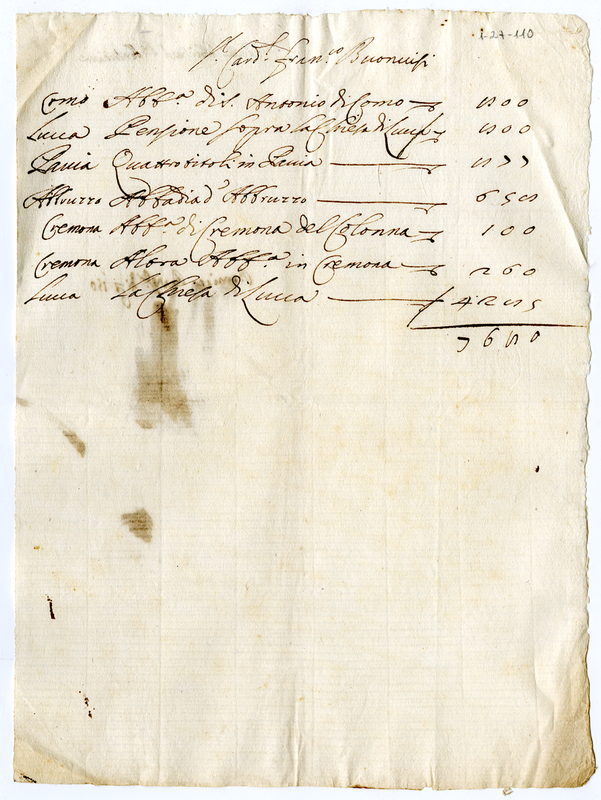 1-27-110
S.r Card.l Fran.co Buonvisi
Como Abb.a di S. Antonio di Como 800
Lucca Pensione sopra la Chiesa di Lucca 800
Pavia Quattro titoli in Pavia 877
Abbruzzo Abbadia d'Abbruzzo 658
Cremona Abb.a di Cremona del Colonna 100
Cremona Altra Abb.a in Cremona 260
Lucca La Chiesa di Lucca 4285
7680